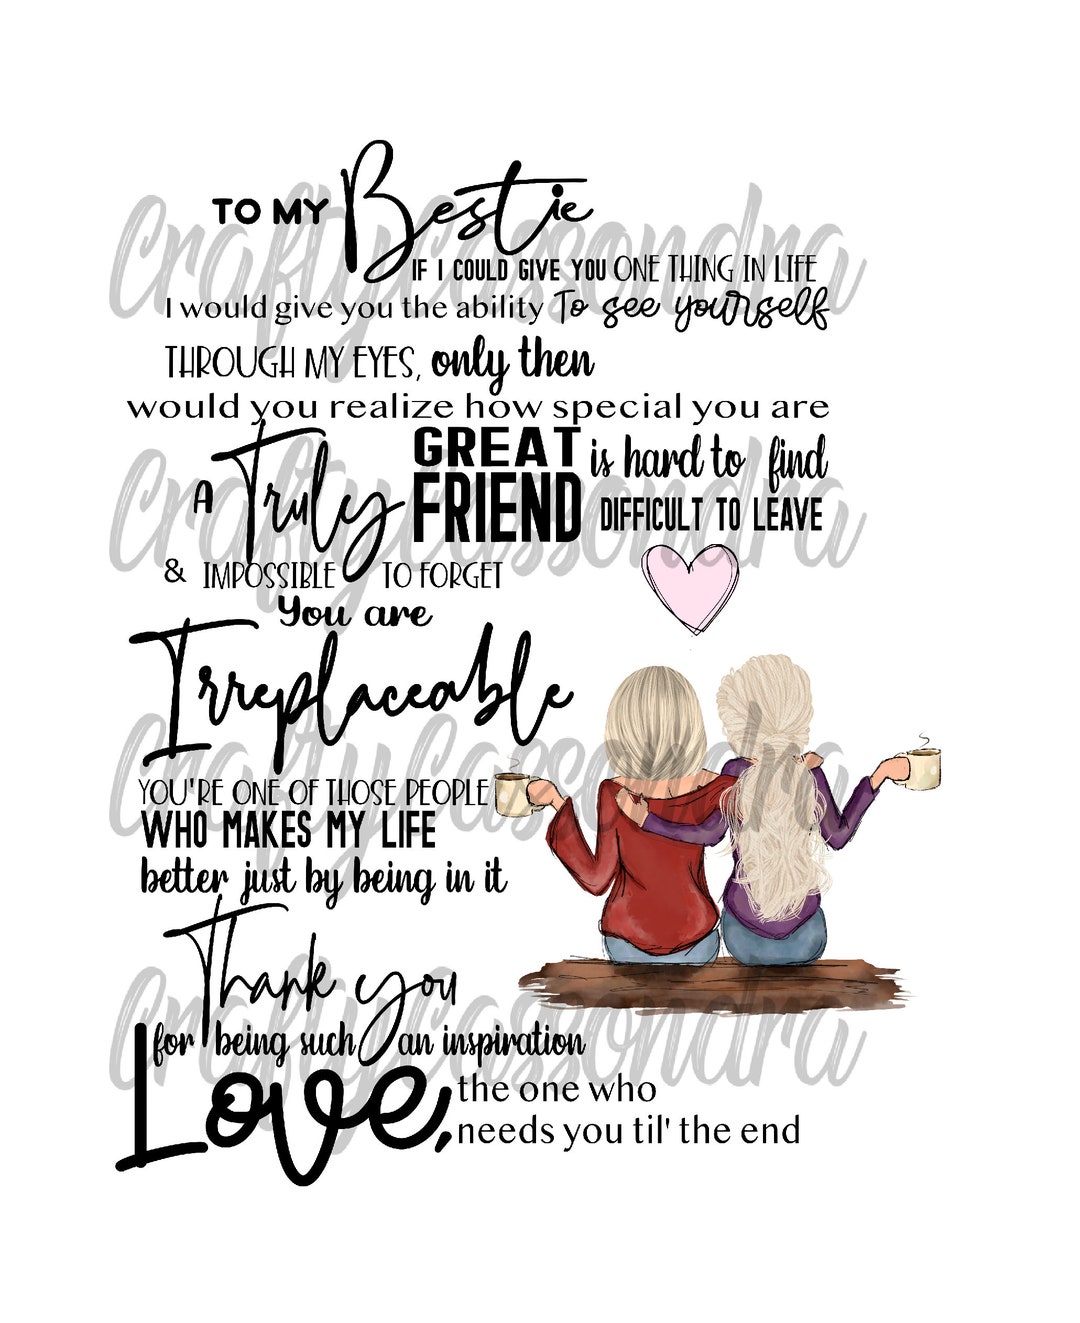 TO MY Bestie
IF I COULD GIVE YOU ONE THING IN LIFE
I would give you the ability To see yourself
THROUGH MY EYES, only then
would you realize how special you are
A Truly GREAT FRIEND is hard to find
DIFFICULT TO LEAVE
& IMPOSSIBLE TO FORGET
You are
Irreplaceable
YOU'RE ONE OF THOSE PEOPLE
WHO MAKES MY LIFE
better just by being in it
Thank you
for being such an inspiration
Love, the one who
needs you til' the end
CraftyCassondra
CraftyCassondra
CraftyCassondra
CraftyCassondra